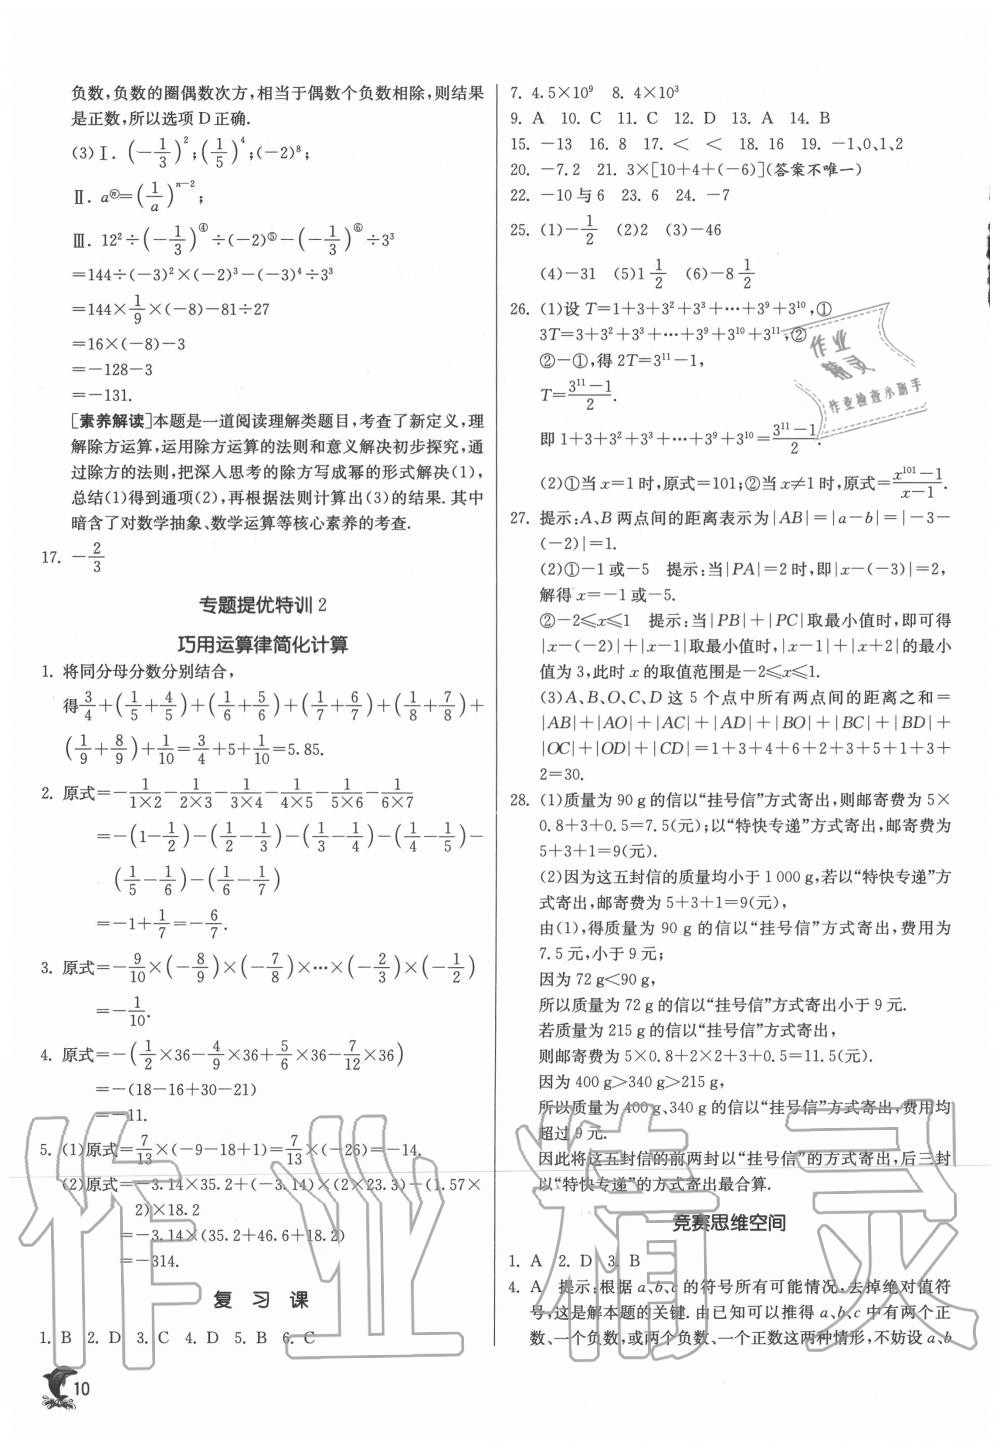 负数,负数的圈偶数次方,相当于偶数个负数相除,则结果
是正数,所以选项D正确.
(3)Ⅰ. (-1/3)²;(1/5)⁴;(-2)⁸;
Ⅱ. aⓝ=(1/a)ⁿ⁻²;
Ⅲ. 12²÷(-1/3)④÷(-2)⑤-(-1/3)⑥÷3³
=144÷(-3)²×(-2)³-(-3)⁴÷3³
=144×1/9×(-8)-81÷27
=16×(-8)-3
=-128-3
=-131.
[素养解读]本题是一道阅读理解类题目,考查了新定义,理
解除方运算,运用除方运算的法则和意义解决初步探究,通
过除方的法则,把深入思考的除方写成幂的形式解决(1),
总结(1)得到通项(2),再根据法则计算出(3)的结果. 其中
暗含了对数学抽象、数学运算等核心素养的考查.
17. -2/3
专题提优特训2
巧用运算律简化计算
1. 将同分母分数分别结合,
得3/4+(1/5+4/5)+(1/6+5/6)+(1/7+6/7)+(1/8+7/8)+
(1/9+8/9)+1/10=3/4+5+1/10=5.85.
2. 原式=-1/1×2-1/2×3-1/3×4-1/4×5-1/5×6-1/6×7
=-(1-1/2)-(1/2-1/3)-(1/3-1/4)-(1/4-1/5)-
(1/5-1/6)-(1/6-1/7)
=-1+1/7=-6/7.
3. 原式=-9/10×(-8/9)×(-7/8)×…×(-2/3)×(-1/2)
=-1/10.
4. 原式=-(1/2×36-4/9×36+5/6×36-7/12×36)
=-(18-16+30-21)
=-11.
5. (1)原式=7/13×(-9-18+1)=7/13×(-26)=-14.
(2)原式=-3.14×35.2+(-3.14)×(2×23.3)-(1.57×
2)×18.2
=-3.14×(35.2+46.6+18.2)
=-314.
复习课
1. B 2. D 3. C 4. D 5. B 6. C
10
7. 4.5×10⁹ 8. 4×10³
9. A 10. C 11. C 12. D 13. A 14. B
15. -13 16. 8 17. < < 18. 16 19. -1、0、1、2
20. -7.2 21. 3×[10+4+(-6)](答案不唯一)
22. -10与6 23. 6 24. -7
25. (1)-1/2 (2)2 (3)-46
(4)-31 (5)1 1/2 (6)-8 1/2
26. (1)设 T=1+3+3²+3³+…+3⁹+3¹⁰,①
3T=3+3²+3³+…+3⁹+3¹⁰+3¹¹,②
②-①,得2T=3¹¹-1,
T=3¹¹-1/2.
即1+3+3²+3³+…+3⁹+3¹⁰=3¹¹-1/2.
(2)①当x=1时,原式=101;②当x≠1时,原式=x¹⁰¹-1/x-1.
27. 提示:A、B两点间的距离表示为|AB|=|a-b|=|-3-
(-2)|=1.
(2)①-1或-5 提示:当|PA|=2时,即|x-(-3)|=2,
解得x=-1或-5.
②-2≤x≤1 提示:当|PB|+|PC|取最小值时,即可得
|x-(-2)|+|x-1|取最小值时,|x-1|+|x+2|的最小
值为3,此时x的取值范围是-2≤x≤1.
(3)A、B、O、C、D这5个点中所有两点间的距离之和=
|AB|+|AO|+|AC|+|AD|+|BO|+|BC|+|BD|+
|OC|+|OD|+|CD|=1+3+4+6+2+3+5+1+3+
2=30.
28. (1)质量为90 g的信以“挂号信”方式寄出,则邮寄费为5×
0.8+3+0.5=7.5(元);以“特快专递”方式寄出,邮寄费为
5+3+1=9(元).
(2)因为这五封信的质量均小于1 000 g,若以“特快专递”方
式寄出,邮寄费为5+3+1=9(元),
由(1),得质量为90 g的信以“挂号信”方式寄出,费用为
7.5元,小于9元;
因为72 g<90 g,
所以质量为72 g的信以“挂号信”方式寄出小于9元.
若质量为215 g的信以“挂号信”方式寄出,
则邮寄费为5×0.8+2×2+3+0.5=11.5(元).
因为400 g>340 g>215 g,
所以质量为400 g、340 g的信以“挂号信”方式寄出,费用均
超过9元.
因此将这五封信的前两封以“挂号信”的方式寄出,后三封
以“特快专递”的方式寄出最合算.
竞赛思维空间
1. A 2. D 3. B
4. A 提示:根据a、b、c的符号所有可能情况,去掉绝对值符
号,这是解本题的关键. 由已知可以推得a、b、c中有两个正
数、一个负数,或两个负数、一个正数这两种情形,不妨设a、b
作业
精灵
作业检查小助手
作业精灵